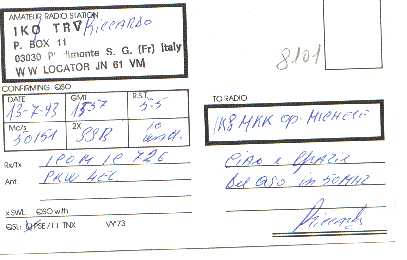 AMATEUR RADIO STATION
IKØ TRV Riccardo
P. BOX 11
03030 Piedimonte S. G. (Fr) Italy
WW LOCATOR JN 61 VM
8101
CONFIRMING QSO
DATE GMT R.S.T.
13-7-93 1557 5-5
Mc/s 2X
50151 SSB 10 watt.
TO RADIO
IK8 MKK op. Michele
Rx/Tx ICOM IC 726
Ant. PKW 4EL
Ciao e Grazie
del QSO in 50 MHz
Riccardo
x SWL QSO with
QSL: PSE/ TNX VY 73